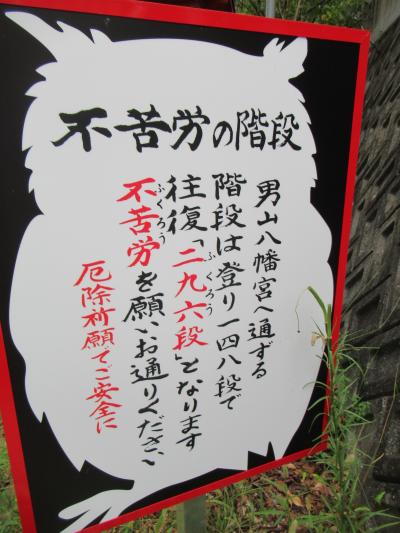 不苦労の階段
男山八幡宮へ通ずる
階段は登り一四八段で
往復「二九六段」となります
ふくろう
不苦労を願いお通りください
ふくろう
厄除祈願でご安全に